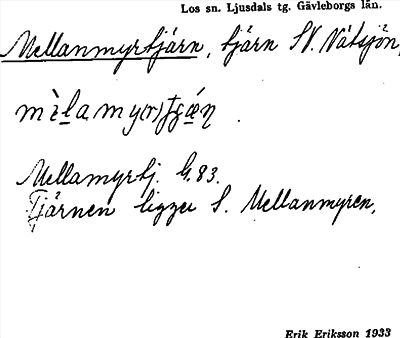 Los sn. Ljusdals tg. Gävleborgs län.
Mellanmyrtjärn, tjärn SV. Nätsjön,
Mellamyrtj. G. 83.
Tjärnen ligger S. Mellanmyren.
Erik Eriksson 1933